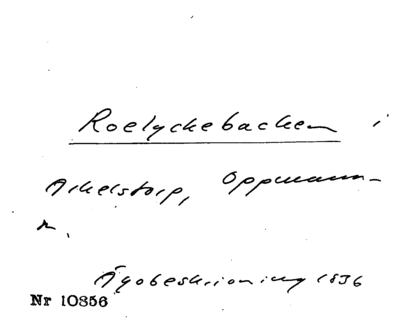 Roelyckebacken i
Arkelstorp, Oppmanna-
n.
Ägobeskrivning 1836
Nr 10856